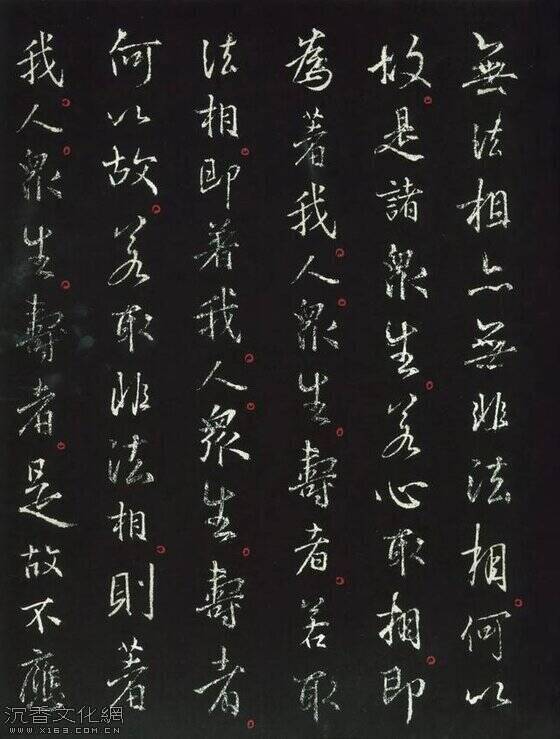 無法相亦無非法相。何以
故。是諸眾生。若心取相。即
為著我。人。眾生。壽者。若取
法相。即著我。人。眾生。壽者。
何以故。若取非法相。則著
我。人。眾生。壽者。是故不應
沉香文化網